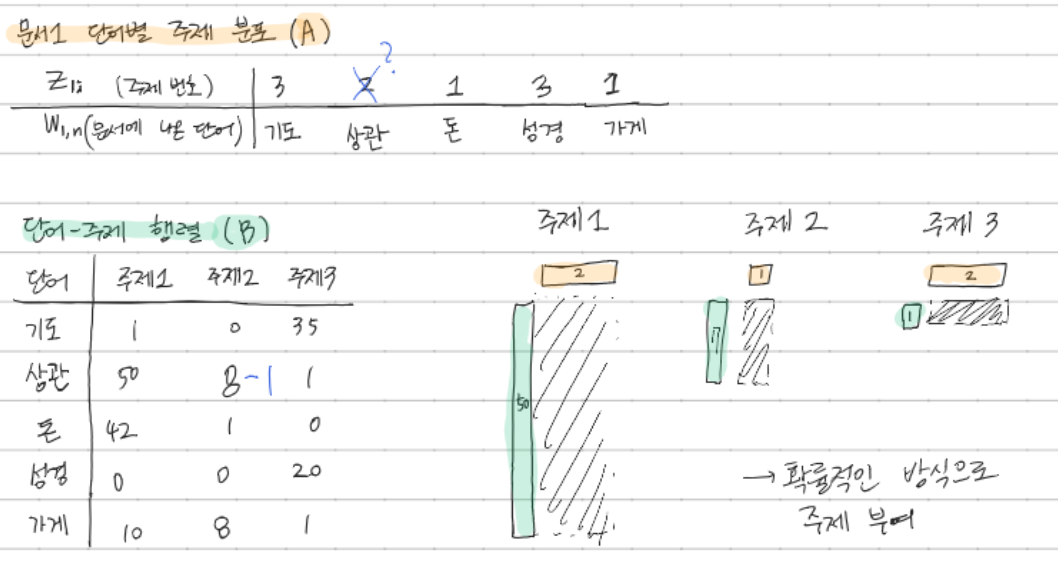 문서1 단어별 주제 분포 (A)
Z1i (주제 번호) 3 2 ? 1 3 1
W1,n(문서에 나온 단어) 기도 상관 돈 성경 가게
단어-주제 행렬 (B)
단어 주제1 주제2 주제3
기도 1 0 35
상관 50 8-1 1
돈 42 1 0
성경 0 0 20
가게 10 8 1
주제1 주제 2 주제 3
2 1 2
50 7 1
→ 확률적인 방식으로
주제 부여